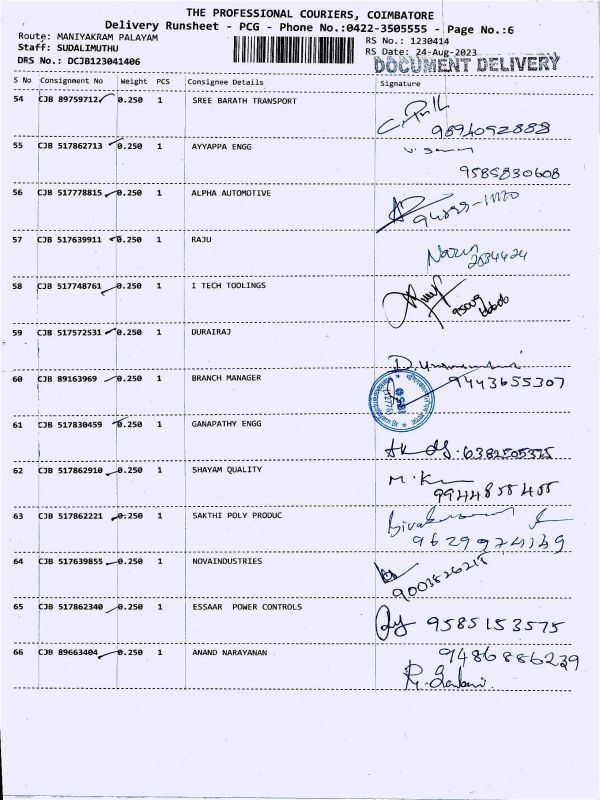 THE PROFESSIONAL COURIERS, COIMBATORE
Delivery Runsheet - PCG - Phone No.:0422-3505555 - Page No.:6
Route: MANIYAKRAM PALAYAM
RS No.: 1230414
Staff: SUDALIMUTHU
RS Date: 24-Aug-2023
DRS No.: DCJB123041406
DOCUMENT DELIVERY
S No Consignment No Weight PCS Consignee Details Signature
54 CJB 89759712 0.250 1 SREE BARATH TRANSPORT
9894092888
55 CJB 517862713 0.250 1 AYYAPPA ENGG
9585830608
56 CJB 517778815 0.250 1 ALPHA AUTOMOTIVE
57 CJB 517639911 0.250 1 RAJU
2634424
58 CJB 517748761 0.250 1 I TECH TOOLINGS
59 CJB 517572531 0.250 1 DURAIRAJ
60 CJB 89163969 0.250 1 BRANCH MANAGER
9443655307
61 CJB 517830459 0.250 1 GANAPATHY ENGG
6382505375
62 CJB 517862910 0.250 1 SHAYAM QUALITY
M.K
9944855455
63 CJB 517862221 0.250 1 SAKTHI POLY PRODUC
9629974369
64 CJB 517639855 0.250 1 NOVAINDUSTRIES
9003826215
65 CJB 517862340 0.250 1 ESSAAR POWER CONTROLS
9585153575
66 CJB 89663404 0.250 1 ANAND NARAYANAN
9486886239